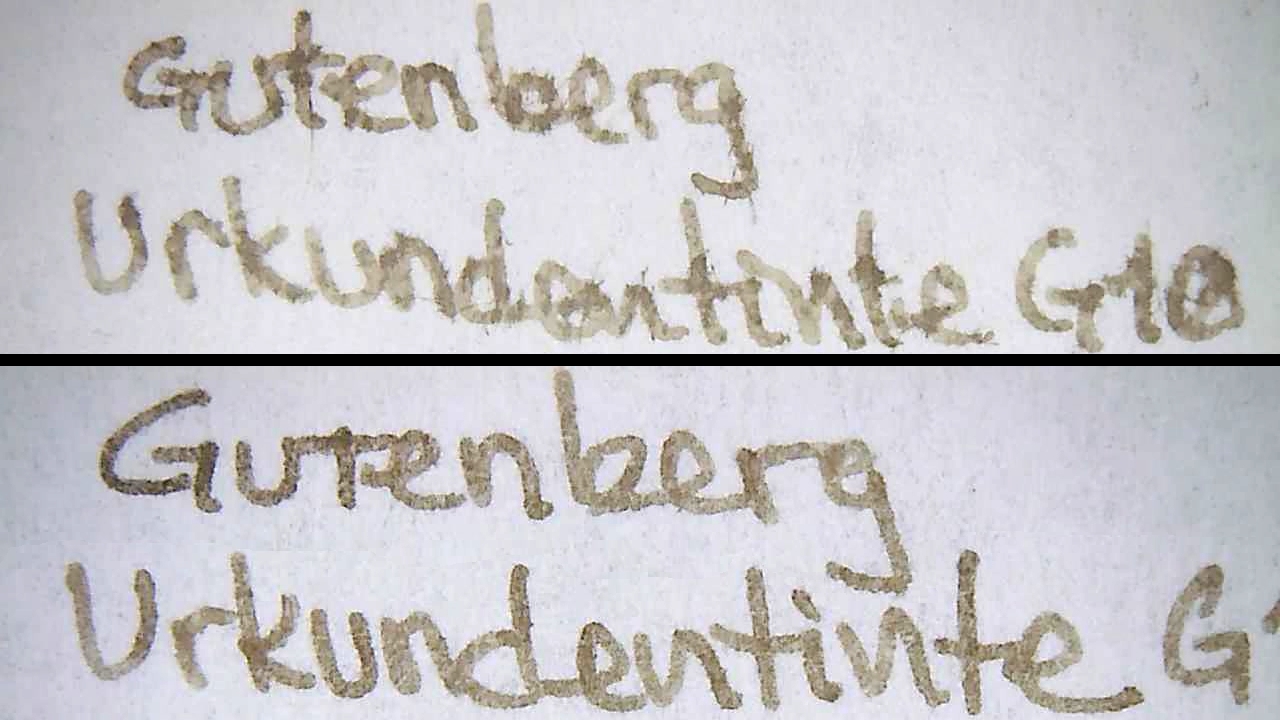 Gutenberg
Urkundentinte G10
Gutenberg
Urkundentinte G1